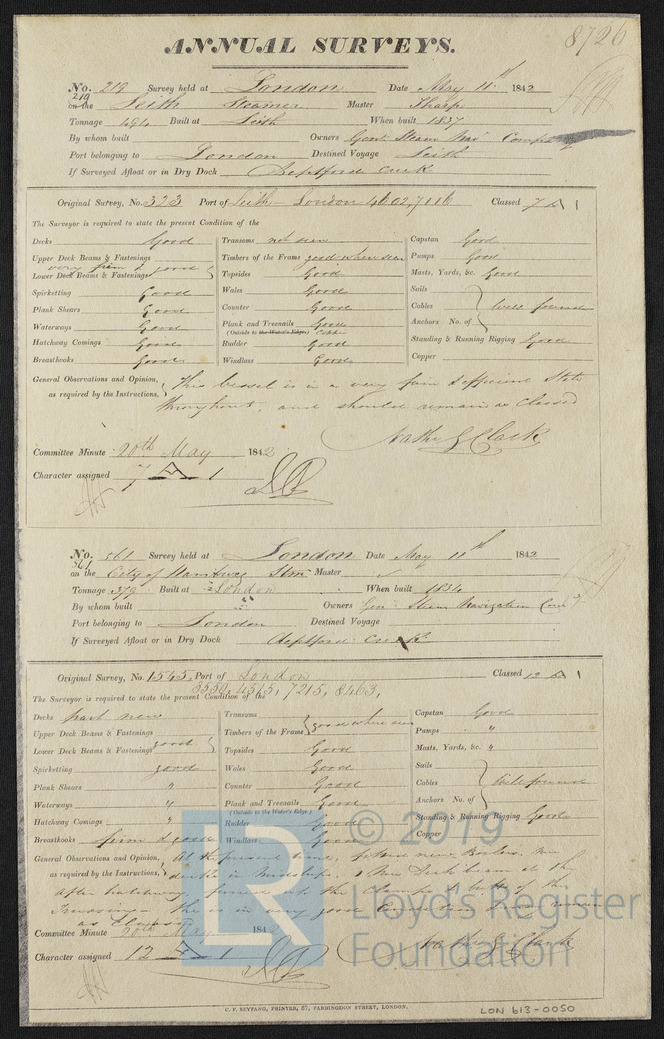 ANNUAL SURVEYS. 8726
No. 219 Survey held at London Date May 11th 1842
219 on the Leith Steamer Master Tharp
Tonnage 494 Built at Leith When built 1837
By whom built Owners Genl Steam Navn Company
Port belonging to London Destined Voyage Leith
If Surveyed Afloat or in Dry Dock Deptford Creek
Original Survey, No. 323 Port of Leith - London 4602, 7116 Classed 7 A 1
The Surveyor is required to state the present Condition of the
Decks Good Transoms not seen Capstan Good
Upper Deck Beams & Fastenings Timbers of the Frame good where seen Pumps Good
very firm & good
Lower Deck Beams & Fastenings Topsides Good Masts, Yards, &c. Good
Spirketting Good Wales Good Sails
Plank Shears Good Counter Good Cables Well found
Waterways Good Plank and Treenails Good Anchors No. of
(Outside to the Water's Edge)
Hatchway Comings Good Rudder Good Standing & Running Rigging Good
Breasthooks Good Windlass Good Copper
General Observations and Opinion, This vessel is in a very firm & efficient State
as required by the Instructions, throughout, and should remain as Classed
Nathl G Clark
Committee Minute 20th May 1842
Character assigned 7 A 1
No. 561 Survey held at London Date May 11th 1842
561 on the City of Hamburg Stmr Master
Tonnage 379 Built at London When built 1834
By whom built Owners Genl Steam Navigation Comy
Port belonging to London Destined Voyage
If Surveyed Afloat or in Dry Dock Deptford Creek
Original Survey, No. 1545, Port of London Classed 12 A 1
3550, 4515, 7215, 8463,
The Surveyor is required to state the present Condition of the
Decks part new Transoms Capstan Good
Upper Deck Beams & Fastenings Timbers of the Frame good where seen Pumps "
Lower Deck Beams & Fastenings good Topsides Good Masts, Yards, &c. "
Spirketting good Wales Good Sails
Plank Shears " Counter Good Cables Well found
Waterways " Plank and Treenails Good Anchors No. of
(Outside to the Water's Edge)
Hatchway Comings " Rudder Good Standing & Running Rigging Good
Breasthooks firm & good Windlass Good Copper
General Observations and Opinion, At the present time, fitted new Boilers. New
as required by the Instructions, deck in Midships. 1 New Deck beam at the
after hatchway, the Clamps & butts of the
she is in very good remain
as Classed
Committee Minute 20th May 1842
Nathl G Clark
Character assigned 12 A 1
C. F. SEYFANG, PRINTER, 57, FARRINGDON STREET, LONDON.
LON 613-0050
LR © 2019
Lloyd's Register
Foundation